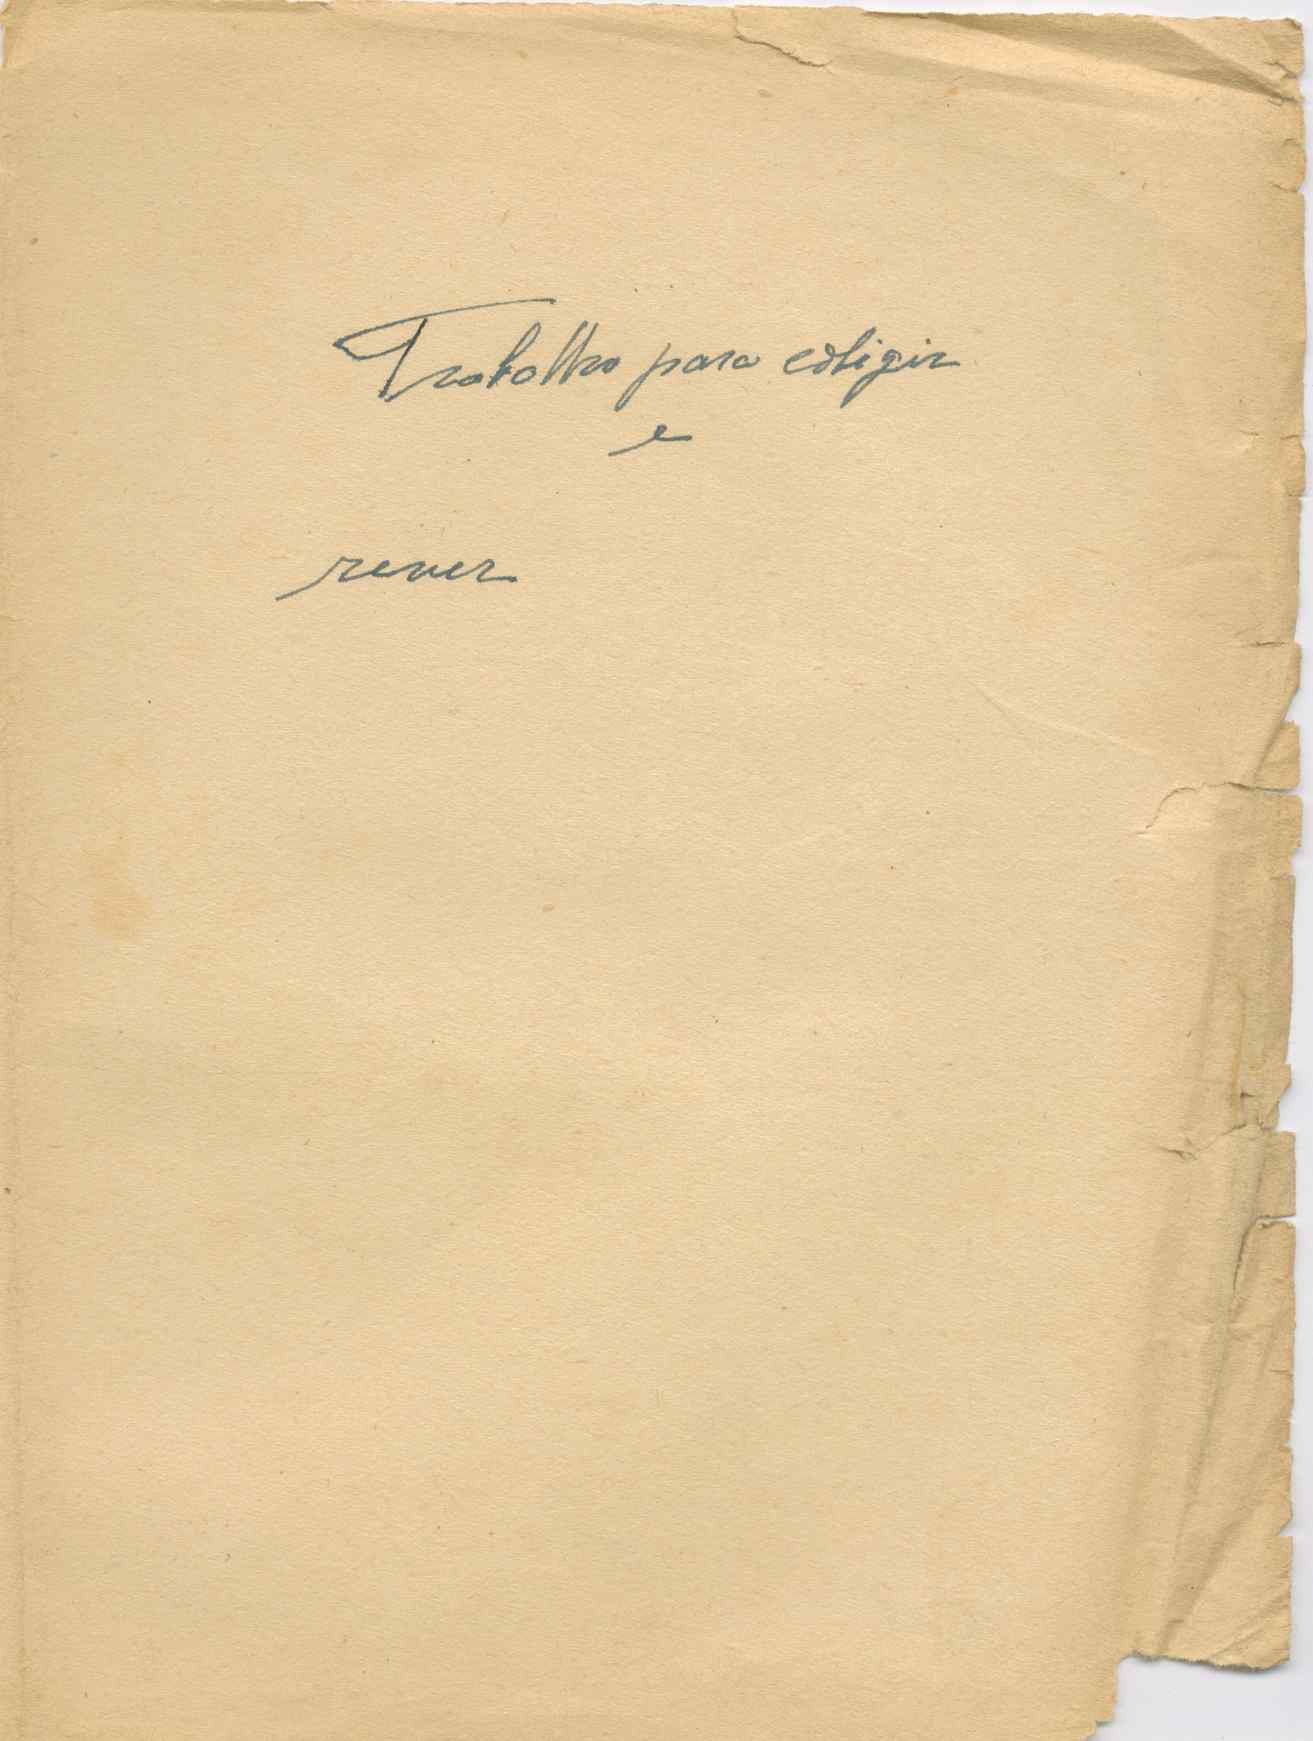 Trabalho para coligir
e
rever